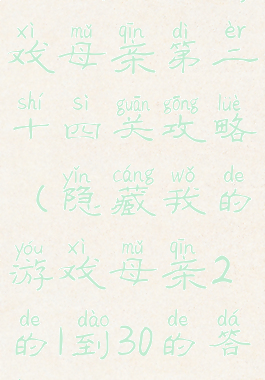 xì mǔ qīn dì èr
戏母亲第二
shí sì guān gōng lüè
十四关攻略
yǐn cáng wǒ de
（隐藏我的
yóu xì mǔ qīn
游戏母亲2
de dào de dá
的1到30的答